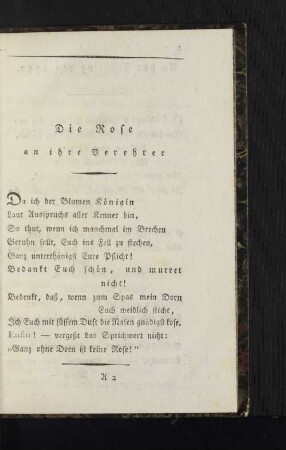 Die Rose
an ihre Verehrer
Da ich der Blumen Königin
Laut Ausspruchs aller Kenner bin,
So thut, wenn ich manchmal im Brechen
Geruhn sollt, Euch ins Fell zu stechen,
Ganz unterthänigst Eure Pflicht!
Bedankt Euch schön, und murret
nicht!
Bedenkt, daß, wenn zum Spas mein Dorn
Euch weidlich sticht,
Ich Euch mit süssem Duft die Nasen gnädigst kose.
Enfin! — vergeßt das Sprichwort nicht:
„Ganz ohne Dorn ist keine Rose!"
A 2